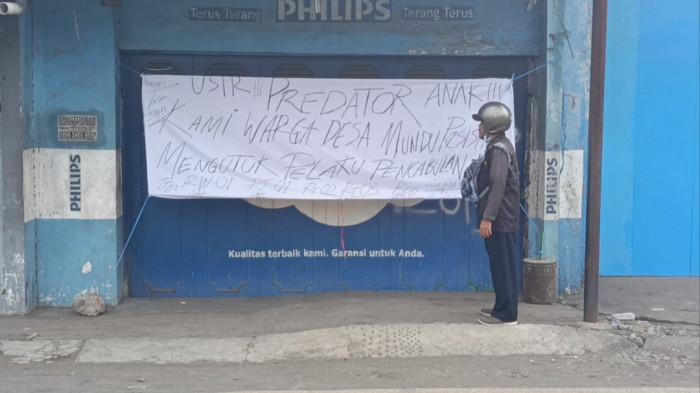 Terus Terang PHILIPS Terang Terus
USIR !!! PREDATOR ANAK !!!
KAMI WARGA DESA MUNDU PESISIR
MENGUTUK PELAKU PENCABULAN
RW 01
PHILIPS
PHILIPS
Kualitas terbaik kami. Garansi untuk Anda.